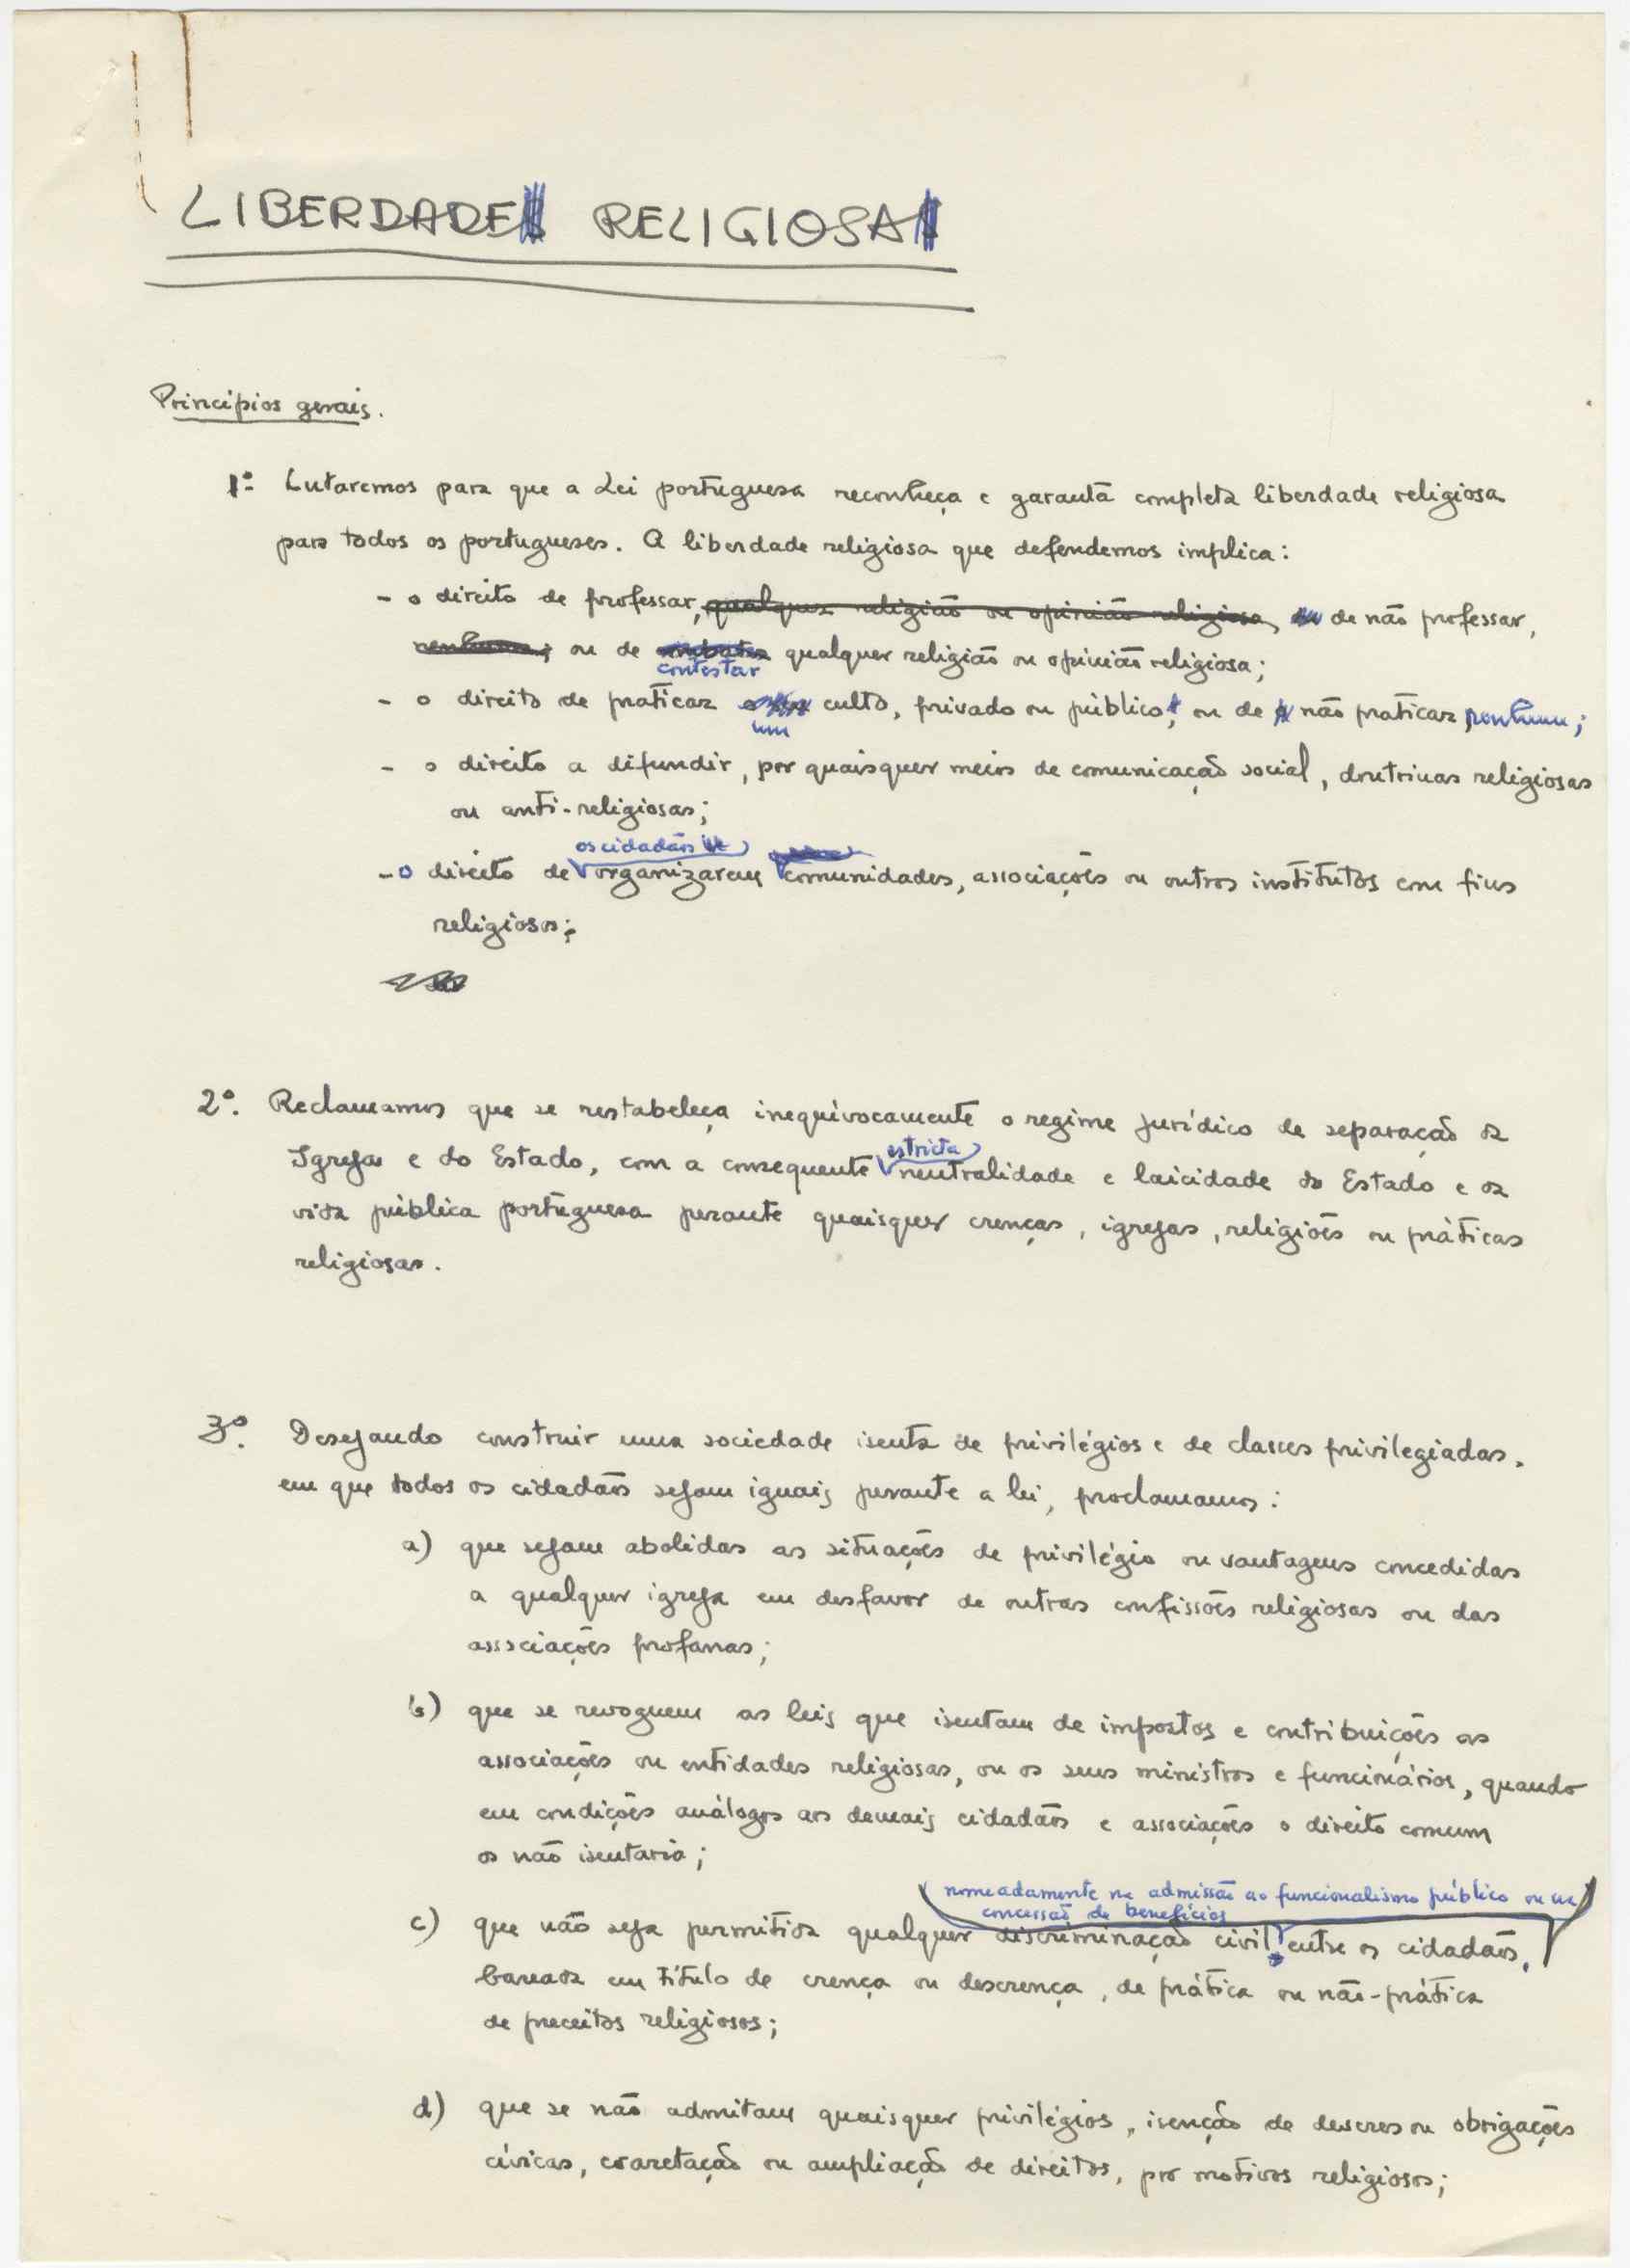 LIBERDADE RELIGIOSA
Princípios gerais.
1º. Lutaremos para que a Lei portuguesa reconheça e garanta completa liberdade religiosa
para todos os portugueses. A liberdade religiosa que defendemos implica:
- o direito de professar, qualquer religião ou opinião religiosa, de não professar,
ou de qualquer religião ou opinião religiosa;
contestar
- o direito de praticar culto, privado ou público, ou de não praticar nenhum;
um
- o direito a difundir, por quaisquer meios de comunicação social, doutrinas religiosas
ou anti-religiosas;
os cidadãos
- o direito de organizarem comunidades, associações ou outros institutos com fins
religiosos;
2º. Reclamamos que se restabeleça inequívocamente o regime jurídico de separação da
estricta
Igreja e do Estado, com a consequente neutralidade e laicidade do Estado e da
vida pública portuguesa perante quaisquer crenças, igrejas, religiões ou práticas
religiosas.
3º. Desejando construir uma sociedade isenta de privilégios e de classes privilegiadas,
em que todos os cidadãos sejam iguais perante a lei, proclamamos:
a) que sejam abolidas as situações de privilégio ou vantagens concedidas
a qualquer igreja em desfavor de outras confissões religiosas ou das
associações profanas;
b) que se revoguem as leis que isentam de impostos e contribuições as
associações ou entidades religiosas, ou os seus ministros e funcionários, quando
em condições análogas aos demais cidadãos e associações o direito comum
os não isentaria;
nomeadamente na admissão ao funcionalismo público ou na
concessão de benefícios
c) que não seja permitida qualquer discriminação civil, entre os cidadãos,
baseada em título de crença ou descrença, de prática ou não-prática
de preceitos religiosos;
d) que se não admitam quaisquer privilégios, isenção de deveres ou obrigações
cívicas, coarctação ou ampliação de direitos, por motivos religiosos;